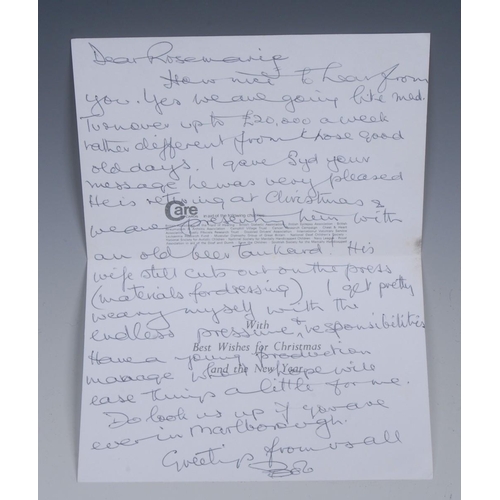 Dear Rosemarie
How nice to hear from
you. Yes we are going like mad.
Turnover up to £20,000 a week
rather different from those good
old days. I gave Syd your
message he was very pleased
He is retiring at Christmas &
Care
we are presenting him with
an old beer tankard. His
wife still cuts out on the press
(materials for dressing) I get pretty
weary myself with the
endless pressure & responsibilities
With
Best Wishes for Christmas
and the New Year
Have a young production
manage who I hope will
ease things a little for me.
Do look us up if you are
ever in Marlborough.
Greetings from us all
Bob